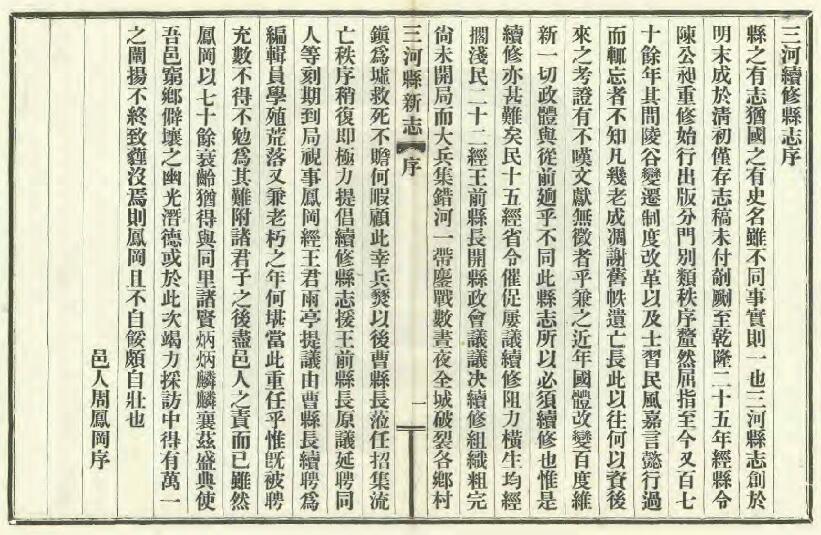 三河續修縣志序
縣之有志猶國之有史名雖不同事實則一也三河縣志創於
明末成於清初僅存志稿未付剞劂至乾隆二十五年經縣令
陳公昶重修始行出版分門別類秩序釐然屈指至今又百七
十餘年其間陵谷變遷制度改革以及士習民風嘉言懿行過
而輒忘者不知凡幾老成凋謝舊帙遺亡長此以往何以資後
來之考證有不嘆文獻無徵者乎兼之近年國體改變百度維
新一切政體與從前迥乎不同此縣志所以必須續修也惟是
續修亦甚難矣民十五經省令催促屢議續修阻力橫生均經
擱淺民二十二經王前縣長開縣政會議議决續修組織粗完
尙未開局而大兵集錯河一帶鏖戰數晝夜全城破裂各鄉村
三河縣新志 序 一
鎭爲墟救死不贍何暇顧此幸兵燹以後曹縣長蒞任招集流
亡秩序稍復即極力提倡續修縣志援王前縣長原議延聘同
人等刻期到局視事鳳岡經王君雨亭提議由曹縣長續聘爲
編輯員學殖荒落又兼老朽之年何堪當此重任乎惟旣被聘
充數不得不勉爲其難附諸君子之後盡邑人之責而已雖然
鳳岡以七十餘衰齡猶得與同里諸賢炳炳麟麟襄茲盛典使
吾邑窮鄉僻壤之幽光潛德或於此次竭力採訪中得有萬一
之闡揚不終致薶沒焉則鳳岡且不自餒頗自壯也
邑人周鳳岡序